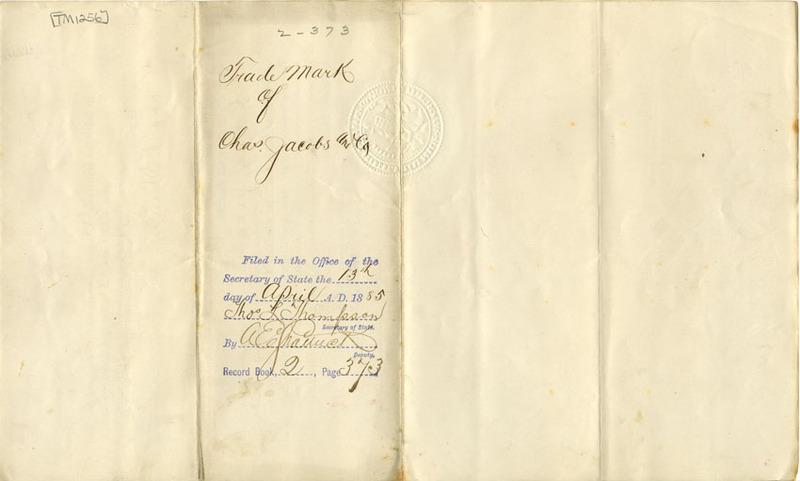 [TM1256]
2-373
Trade Mark
of
Chas Jacobs and Co
Filed in the Office of the
Secretary of State the 13th
day of April A. D. 1885
Thos L Thompson
Secretary of State.
By
Deputy.
Record Book, 2, Page 373